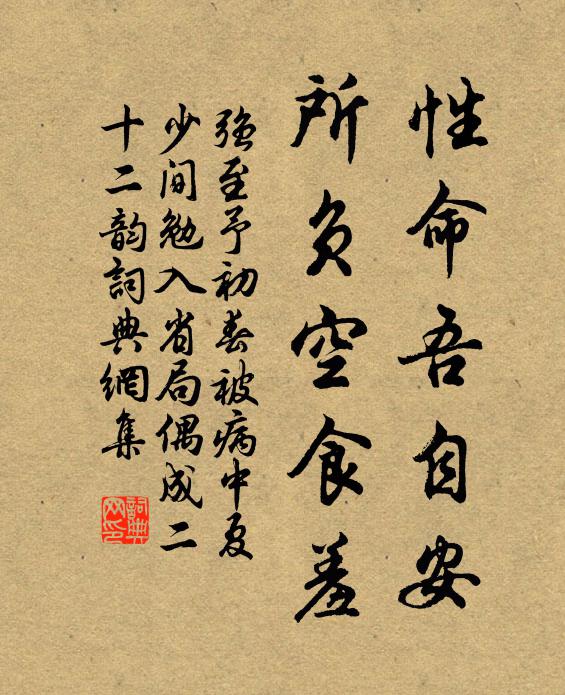 性命吾自安
所负空食羞
强至予初春被病中夏
少间勉入省局偶成二
十二韵詞典網集
詞典
网印